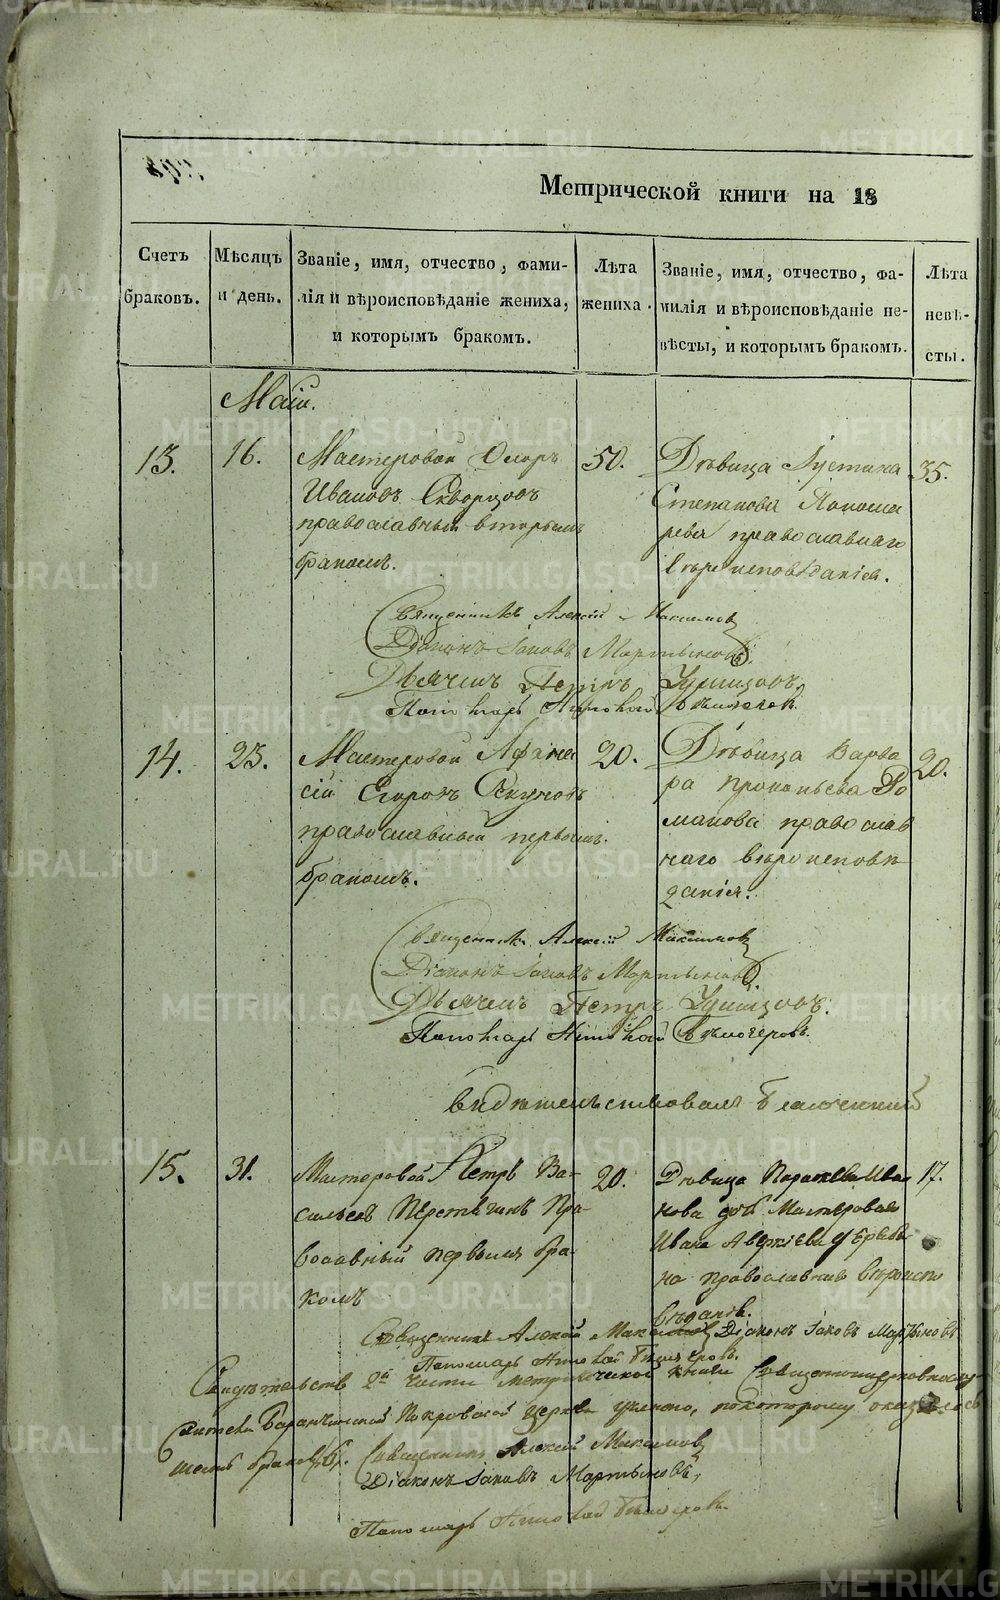 Метрической книги на 18
Счетъ браковъ.
Мѣсяцъ и день.
Званіе, имя, отчество, фами-
лія и вѣроисповѣданіе жениха,
и которымъ бракомъ.
Лѣта жениха.
Званіе, имя, отчество, фа-
милія и вѣроисповѣданіе не-
вѣсты, и которымъ бракомъ.
Лѣта невѣ-
сты.
Маій.
13.
16.
Мастеровой
Ивановъ Скворцовъ
православный вторымъ
бракомъ.
50.
Дѣвица Іустина
Степанова Понома
рева православнаго
вѣроисповѣданія.
35.
Священникъ Алексій Максимовъ
Діаконъ Іаковъ Мартыновъ.
Дьячекъ Петръ
Пономарь
14.
23.
Мастеровой Афана
сій Егоровъ
православный первымъ
бракомъ.
20.
Дѣвица Варва
ра Прокопьева Ро
манова православ
наго вѣроисповѣ
данія.
20.
Священникъ Алексій Максимовъ
Діаконъ Іаковъ Мартыновъ.
Дьячекъ Петръ
Пономарь
свидѣтельствовалъ
15.
31.
Мастеровой Петръ Ва-
сильевъ Перетягинъ Пра-
вославный первымъ бра
комъ
20.
Дѣвица Параскева Ива
нова дочь Мастероваго
Ивана
православнаго вѣроиспо
вѣданія.
17.
Священникъ Алексій Максимовъ Діаконъ Іаковъ Мартыновъ
Пономарь
Свидѣтельство 2й части метрической книги
Баранчинской Покровской церкви учинено, по которому оказалось
шесть браковъ (6). Священникъ Алексій Максимовъ
Діаконъ Іаковъ Мартыновъ,
Пономарь
METRIKI.GASO-URAL.RU